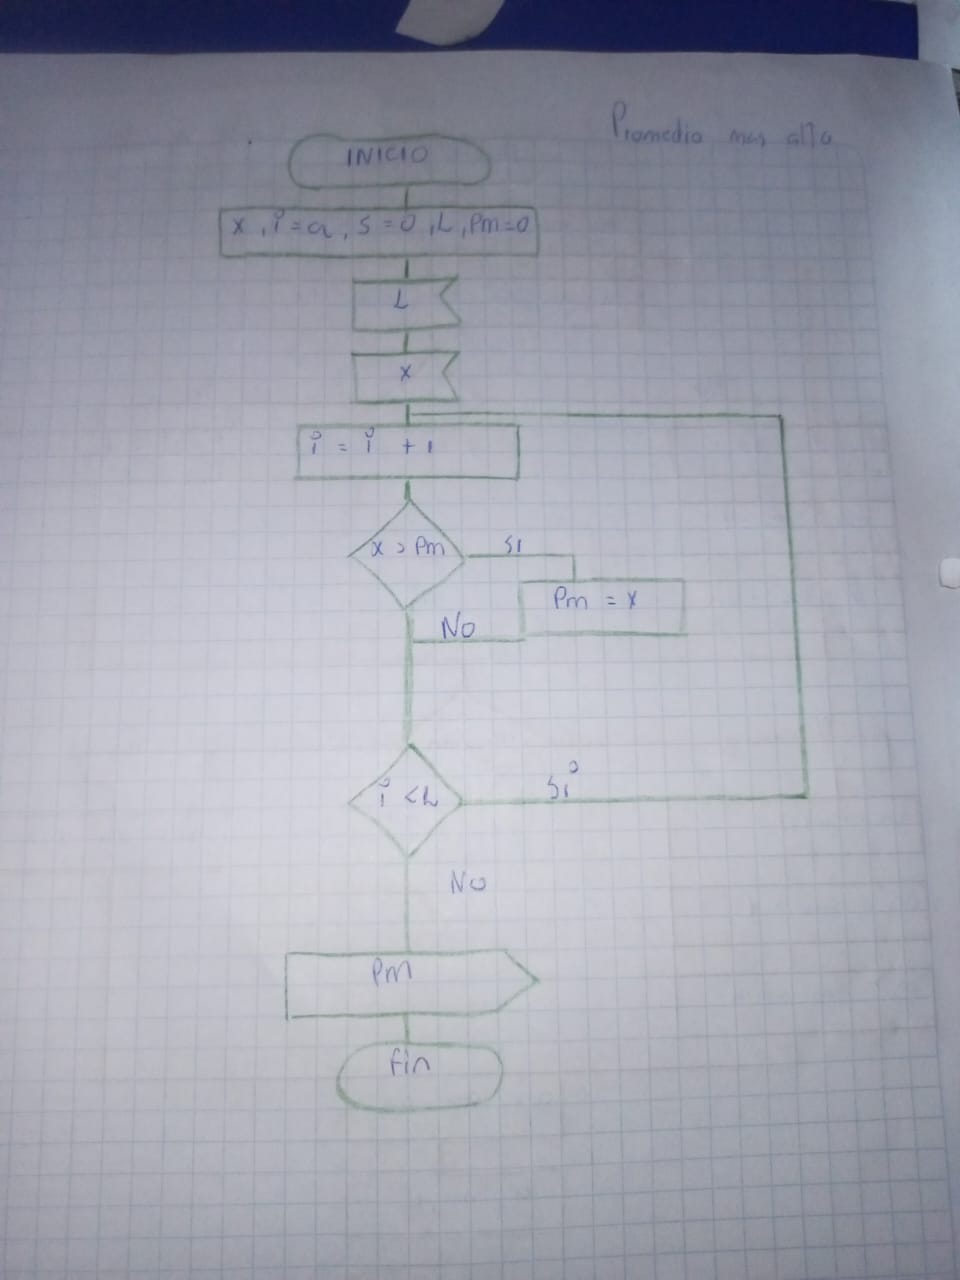 Promedio mas alto
INICIO
x , i = a , s = 0 , L , Pm=0
L
x
i = i + 1
x > Pm
SI
Pm = x
No
i < L
Si
No
Pm
fin